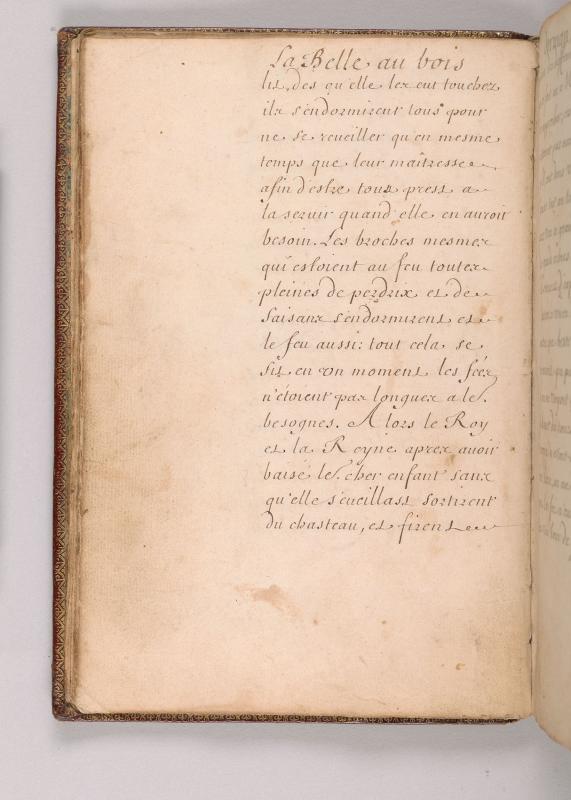 La Belle au bois
lit, des qu'elle les eut touchez
ils s'endormirent tous pour
ne se reueiller qu'en mesme
temps que leur maîtresse
afin d'estre tous prests a
la seruir quand elle en auroit
besoin. Les broches mesmes
qui estoient au feu toutes
pleines de perdrix et de
faisans s'endormirent et
le feu aussi: tout cela se
fit en vn moment, les fées
n'étoient pas longues a le.
besognes. Alors le Roy
et la Reyne apres auoir
baisé le. cher enfant sans
qu'elle s'eueillast sortirent
du chasteau, et firent